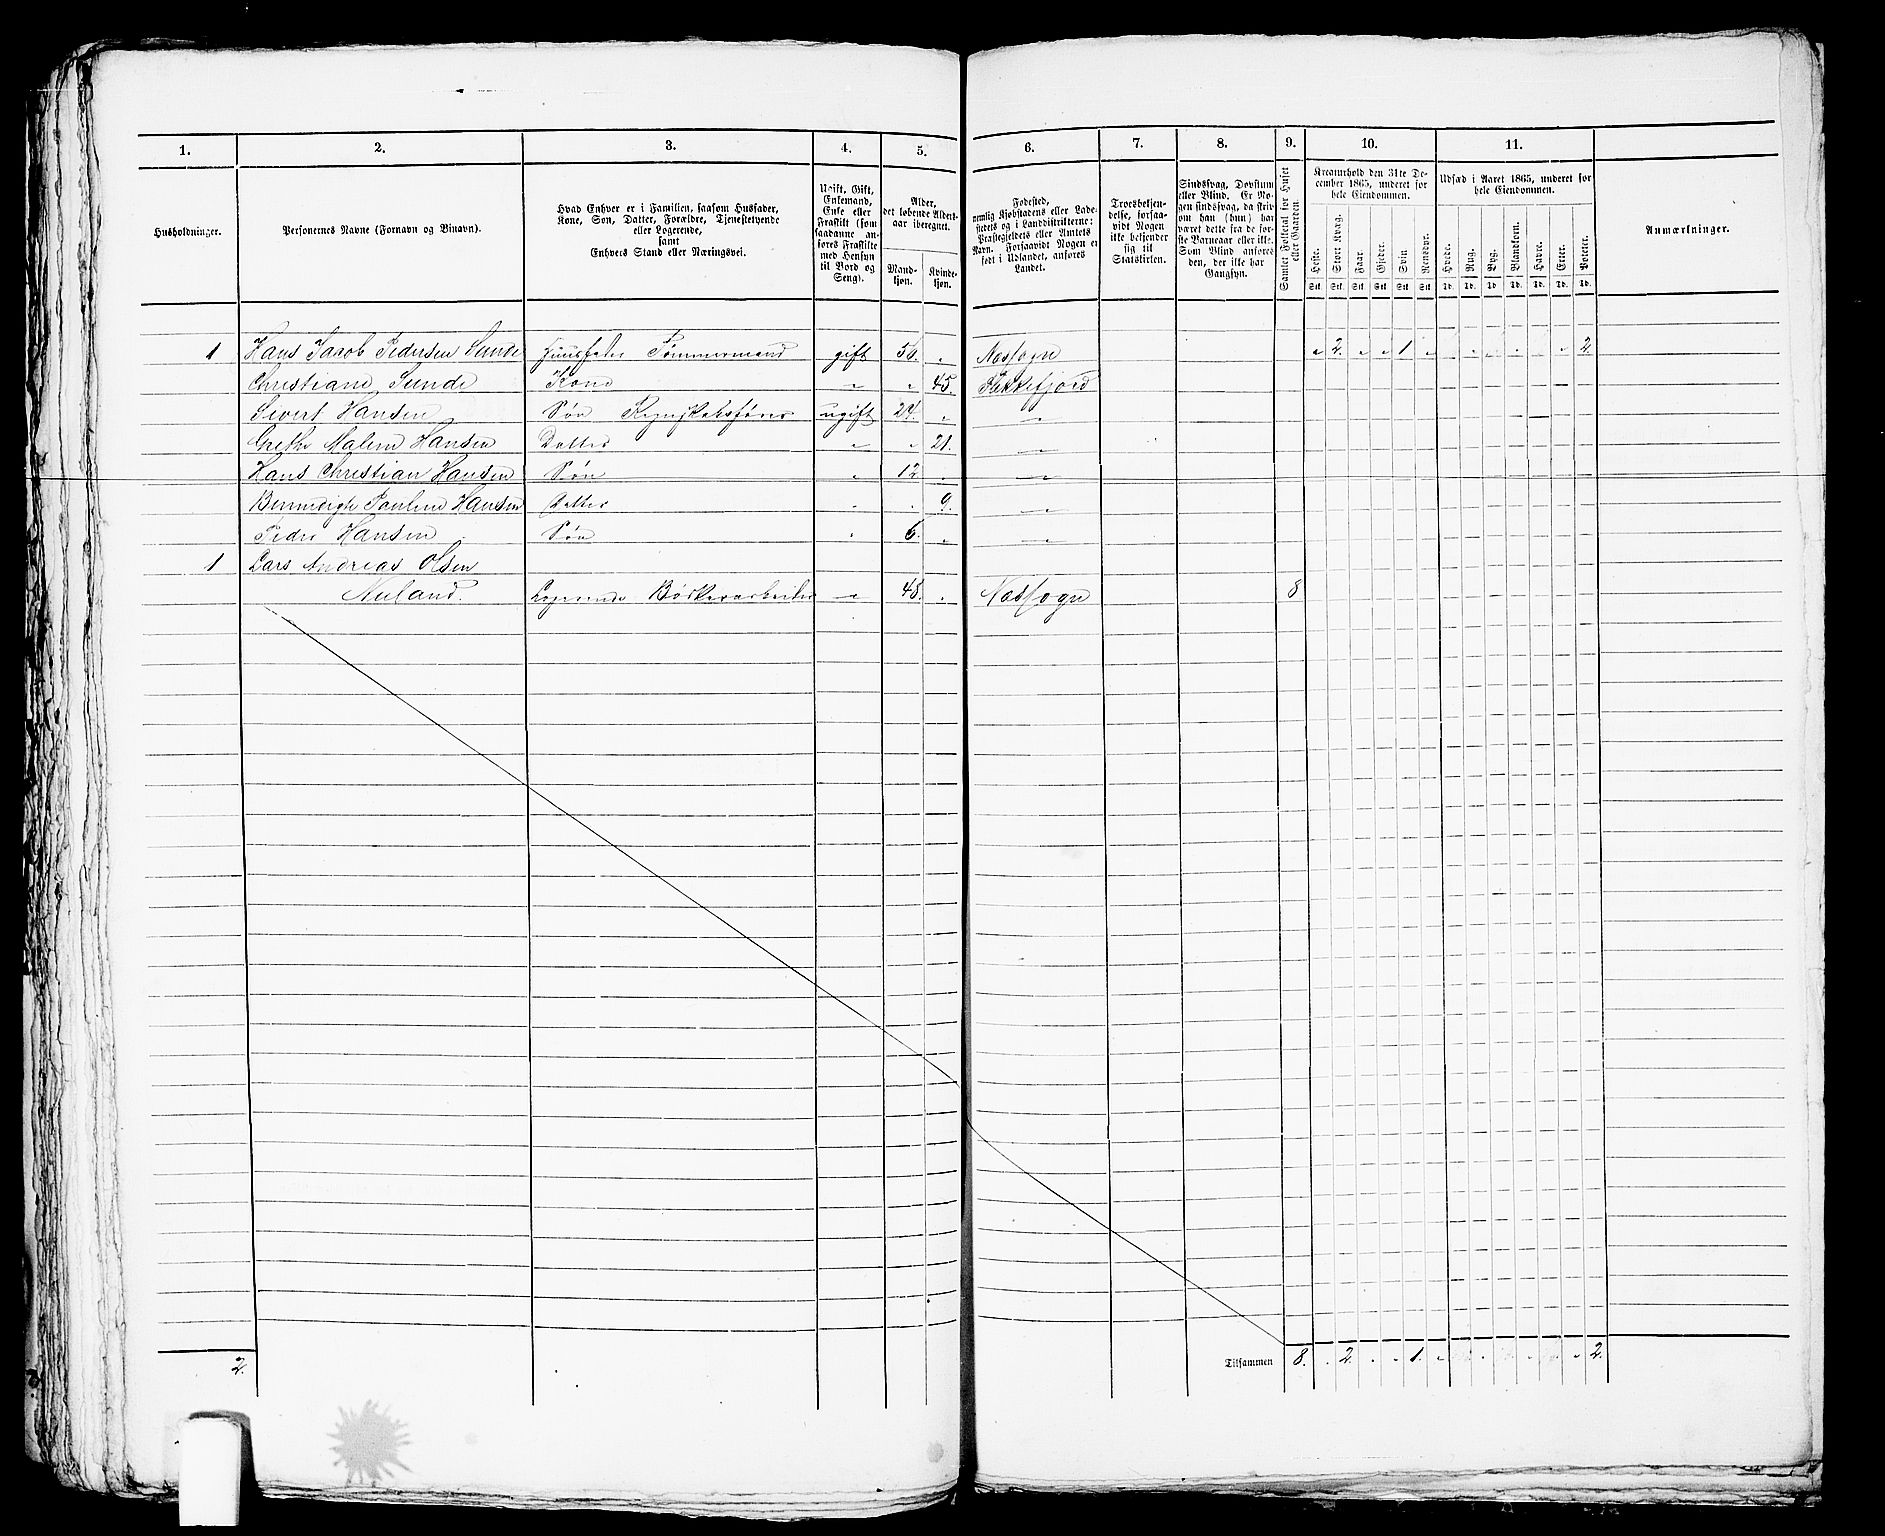 1. 2. 3. 4. 5. 6. 7. 8. 9. 10. 11.
Husholdninger.
Personernes Navne (Fornavn og Binavn).
Hvad Enhver er i Familien, saasom Husfader,
Kone, Søn, Datter, Forældre, Tjenestetyende
eller Logerende,
samt
Enhvers Stand eller Næringsvei.
Ugift, Gift,
Enkemand,
Enke eller
Fraskilt (som
saadanne an-
føres Fraskilte
med Hensyn
til Bord og
Seng).
Alder,
det løbende Alders-
aar iberegnet.
Mand-
kjøn.
Kvinde-
kjøn.
Fødested,
nemlig Kjøbstadens eller Lade-
stedets og i Landdistrikterne:
Præstegjeldets eller Amtets
Navn. Forsaavidt Nogen er
født i Udlandet, anføres
Landet.
Troesbekjen-
delse, forsaa-
vidt Nogen
ikke bekjender
sig til
Statskirken.
Sindssvag, Døvstum
eller Blind. Er No-
gen sindssvag, da skriv
om han (hun) har
været dette fra de før-
ste Barneaar eller ikke.
Som Blind anføres
den, der ikke har
Gangsyn.
Samlet Folketal for Huset
eller Gaarden.
Kreaturhold den 31te De-
cember 1865, underet for
hele Eiendommen.
Heste. Stort Kvæg. Faar. Gjeder. Svin Rensdyr.
Stk. Stk. Stk. Stk. Stk. Stk.
Udsæd i Aaret 1865, underet for
hele Eiendommen.
Hvede. Rug. Byg. Blandkorn. Havre. Erter. Poteter.
Td. Td. Td. Td. Td. Td. Td.
Anmærkninger.
1 Hans Jacob Pedersen Sunde Huusfader Tømmermand gift 56. „ Nessogn „ 2. „ „ 1 „ „ „ „ „ 2.
Christiane Sunde Kone „ „ 45. Flekkefjord
Sivert Hansen Søn Regnskabsfører ugift 24. „ „
Grethe Malene Hansen Datter „ „ 21. „
Hans Christian Hansen Søn „ 12 „ „
Bennedigte Pauline Hansen Datter „ „ 9. „
Peder Hansen Søn „ 6. „ „
1 Lars Andreas Olsen
Nuland. Logerende Bødkerarbeider „ 48. „ Nessogn 8
2. Tilsammen 8. „ 2. „ „ 1. „ „ „ „ 2.